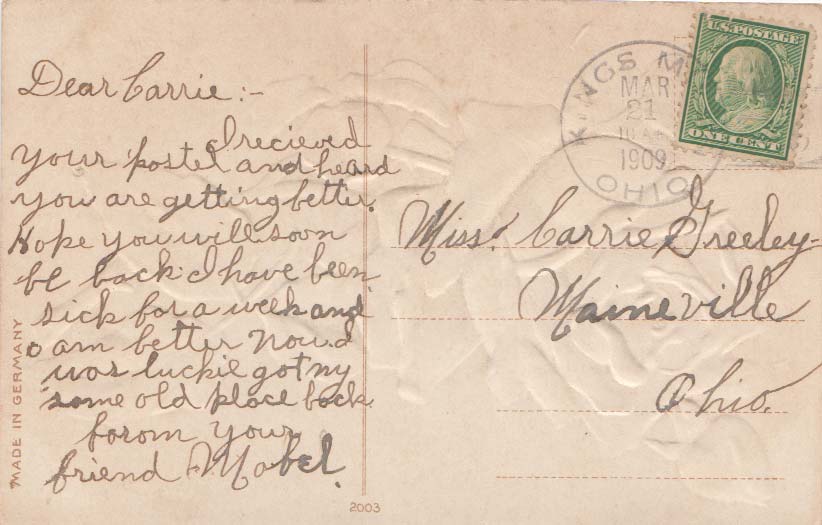 Dear Carrie:-
I recieved
your postel and heard
you are getting better.
Hope you will soon
be back. I have been
sick for a week and
am better now. I
was luckie got my
same old place back
forom your
friend Mabel.
MADE IN GERMANY
2003
KINGS M
MAR
21
10 A
1909
OHIO
U.S. POSTAGE
ONE CENT
Miss. Carrie Greeley
Maineville
Ohio.